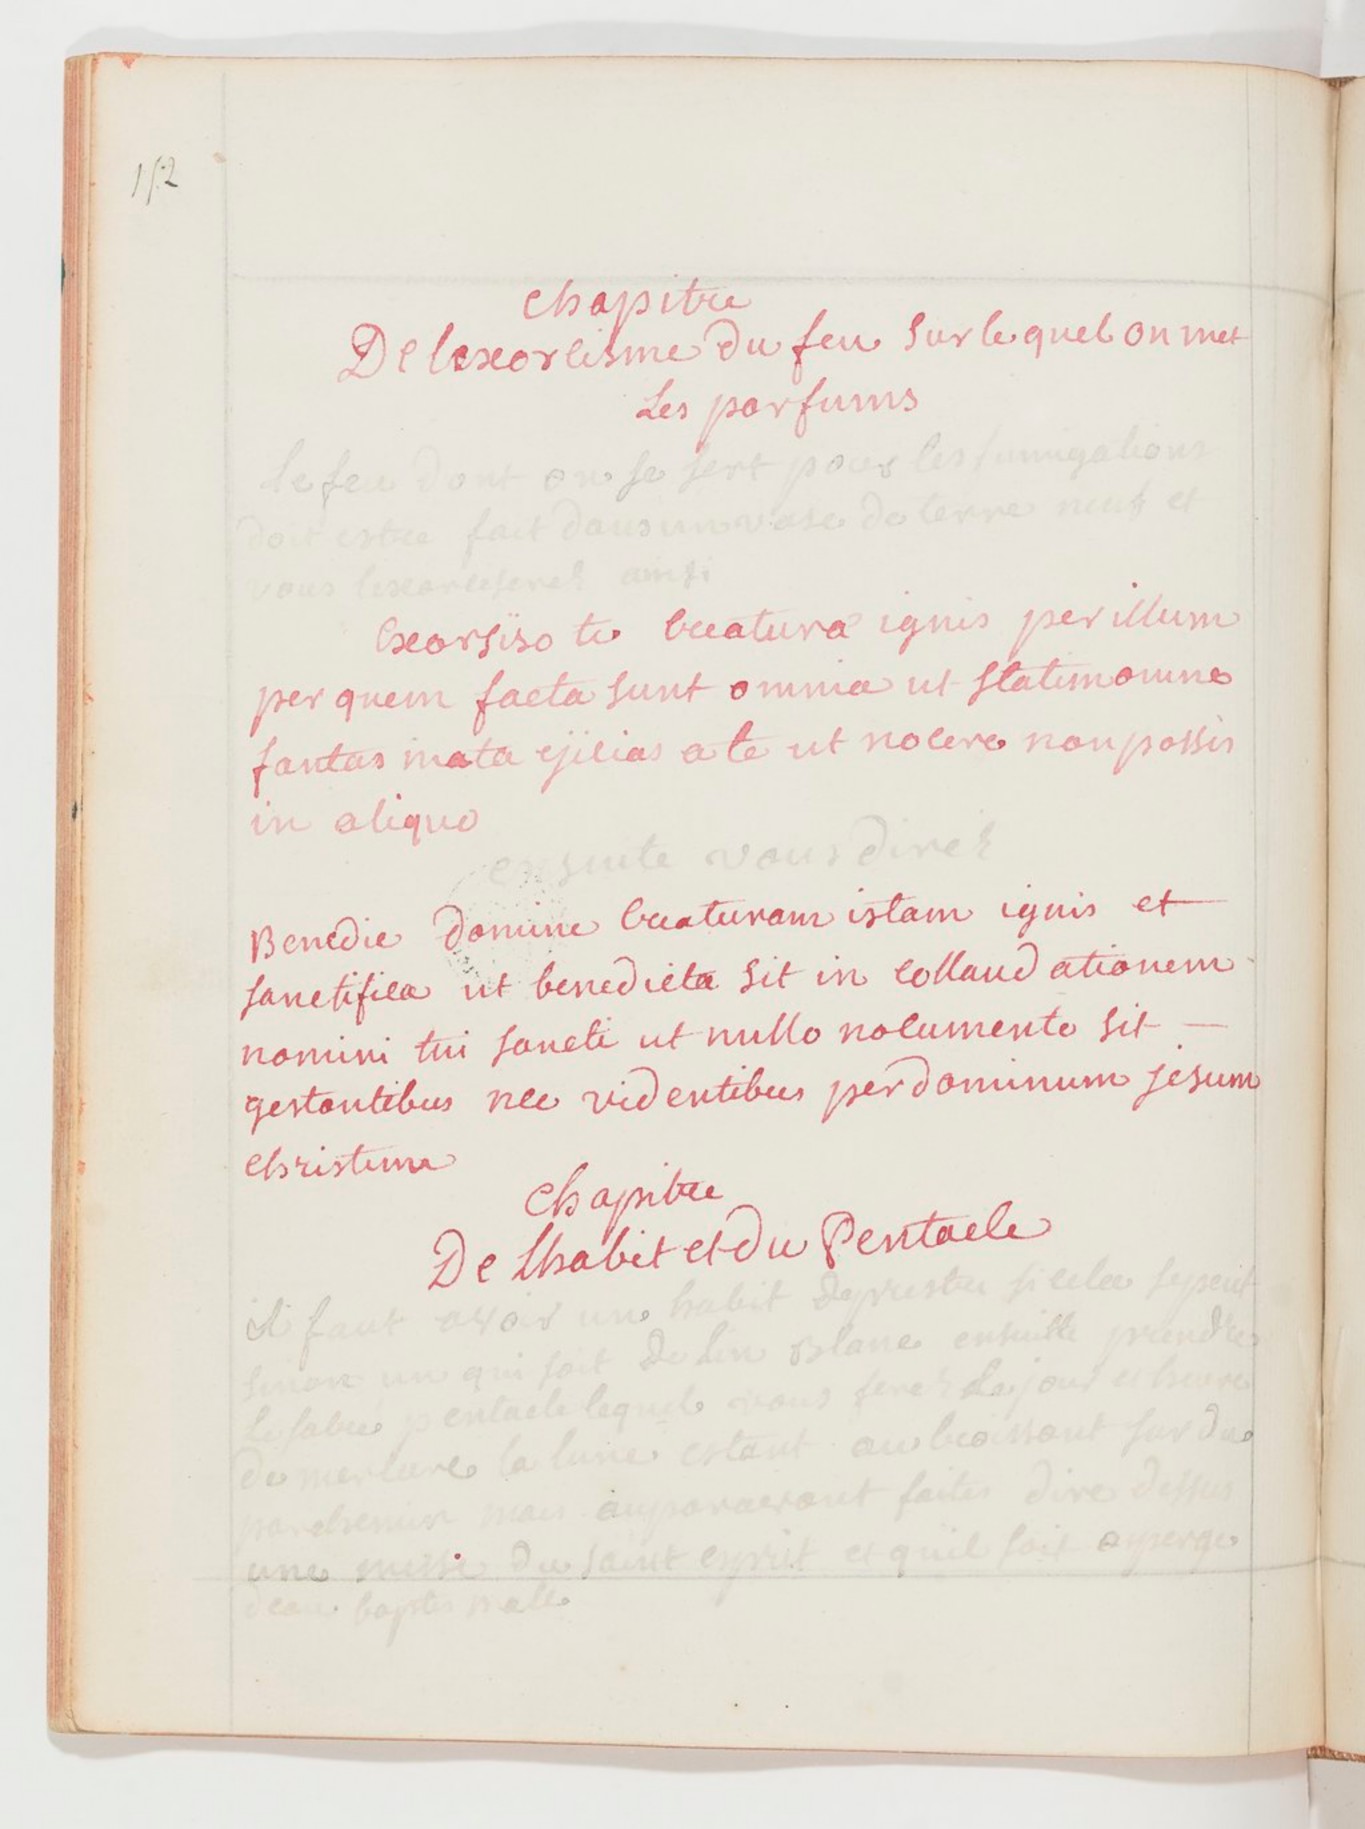 152
Chapitre
De lexorcisme du feu sur le quel on met
Les parfums
Le feu dont on se sert pour les fumigations
doit estre fait dans un vase de terre neuf et
vous lexorciserez ainsi
Exorsiso te creatura ignis per illum
per quem facta sunt omnia ut statim omne
fantasmata ejicias a te ut nocere non possis
in aliquo
ensuite vous direz
Benedic domine creaturam istam ignis et
sanctifica ut benedicta sit in collaudationem
nomini tui sancti ut nullo nocumento sit
gestantibus nec videntibus per dominum jesum
christum
Chapitre
De Lhabit et du Pentacle
il faut avoir un habit de prestre si cela se peut
sinon un qui soit de lin blanc ensuitte prendre
pentacle lequel vous ferez le jour et heure
de mercure la lune estant au croissant sur du
parchemin mais auparavant faites dire dessus
une messe du saint esprit et quil soit asperge
deau baptismalle